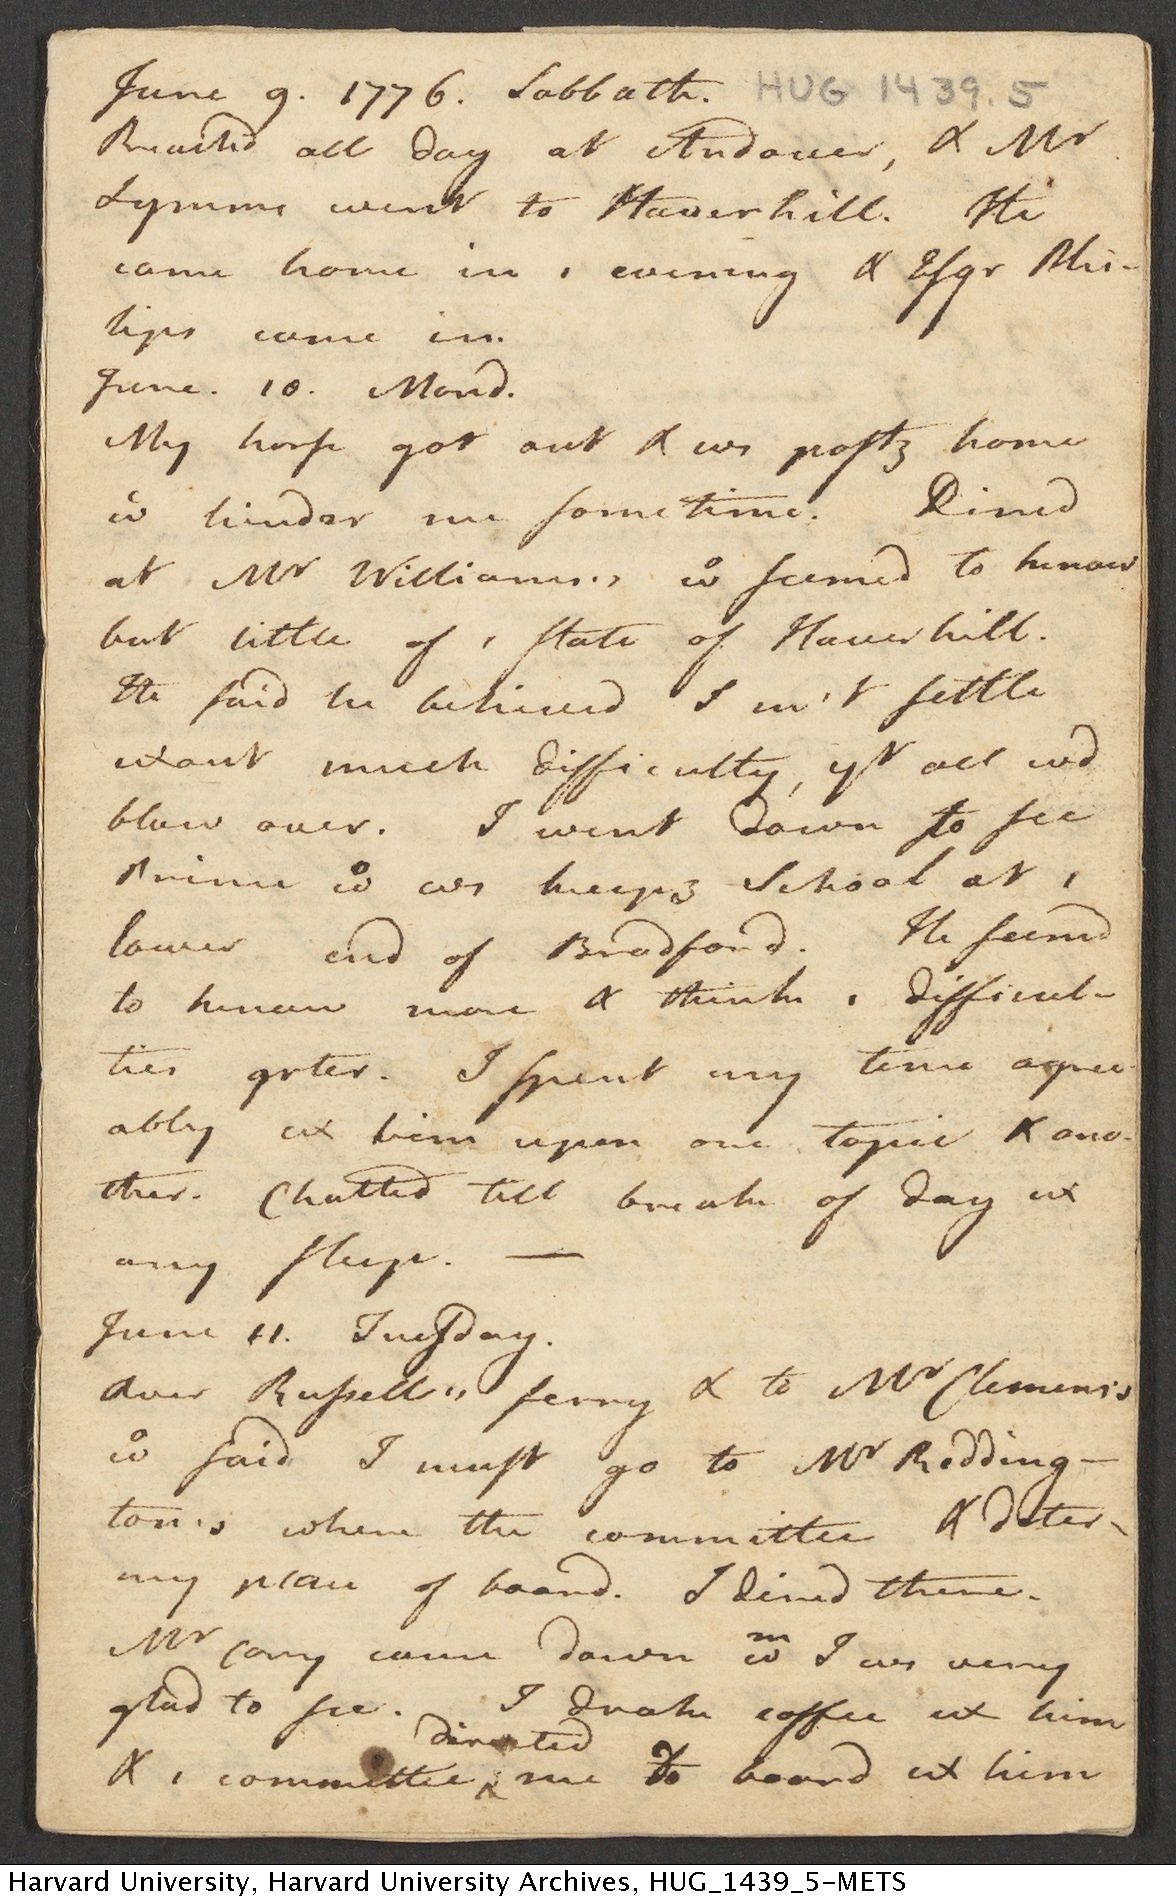 June 9. 1776. Sabbath. HUG 1439.5
Preached all day at Andover, & Mr
Symmes went to Haverhill. He
came home in , evening & Esqr Phi-
lips came in.
June. 10. Mond.
My horse got out & ws postg home
wo hinder me sometime. Dined
at Mr Williams's wo seemed to know
but little of , state of Haverhill.
He said he believed I m't settle
wtout much difficulty, yt all wd
blow over. I went down to see
Prime wo ws keepg School at ,
lower end of Bradford. He seemd
to know more & think , difficul-
ties grter. I spent my time agree-
ably wt him upon one topic & ano-
ther. Chatted till break of day wt
any sleep. —
June 11. Tuesday.
Over Russell's ferry & to Mr Clemens's
wo said I must go to Mr Redding-
ton's where the committee & deter-
my place of board. I dined there.
Mr Cary came down wm I ws very
glad to see. I drank coffee wt him
directed
& , committee ^ me to board wt him
Harvard University, Harvard University Archives, HUG_1439_5-METS